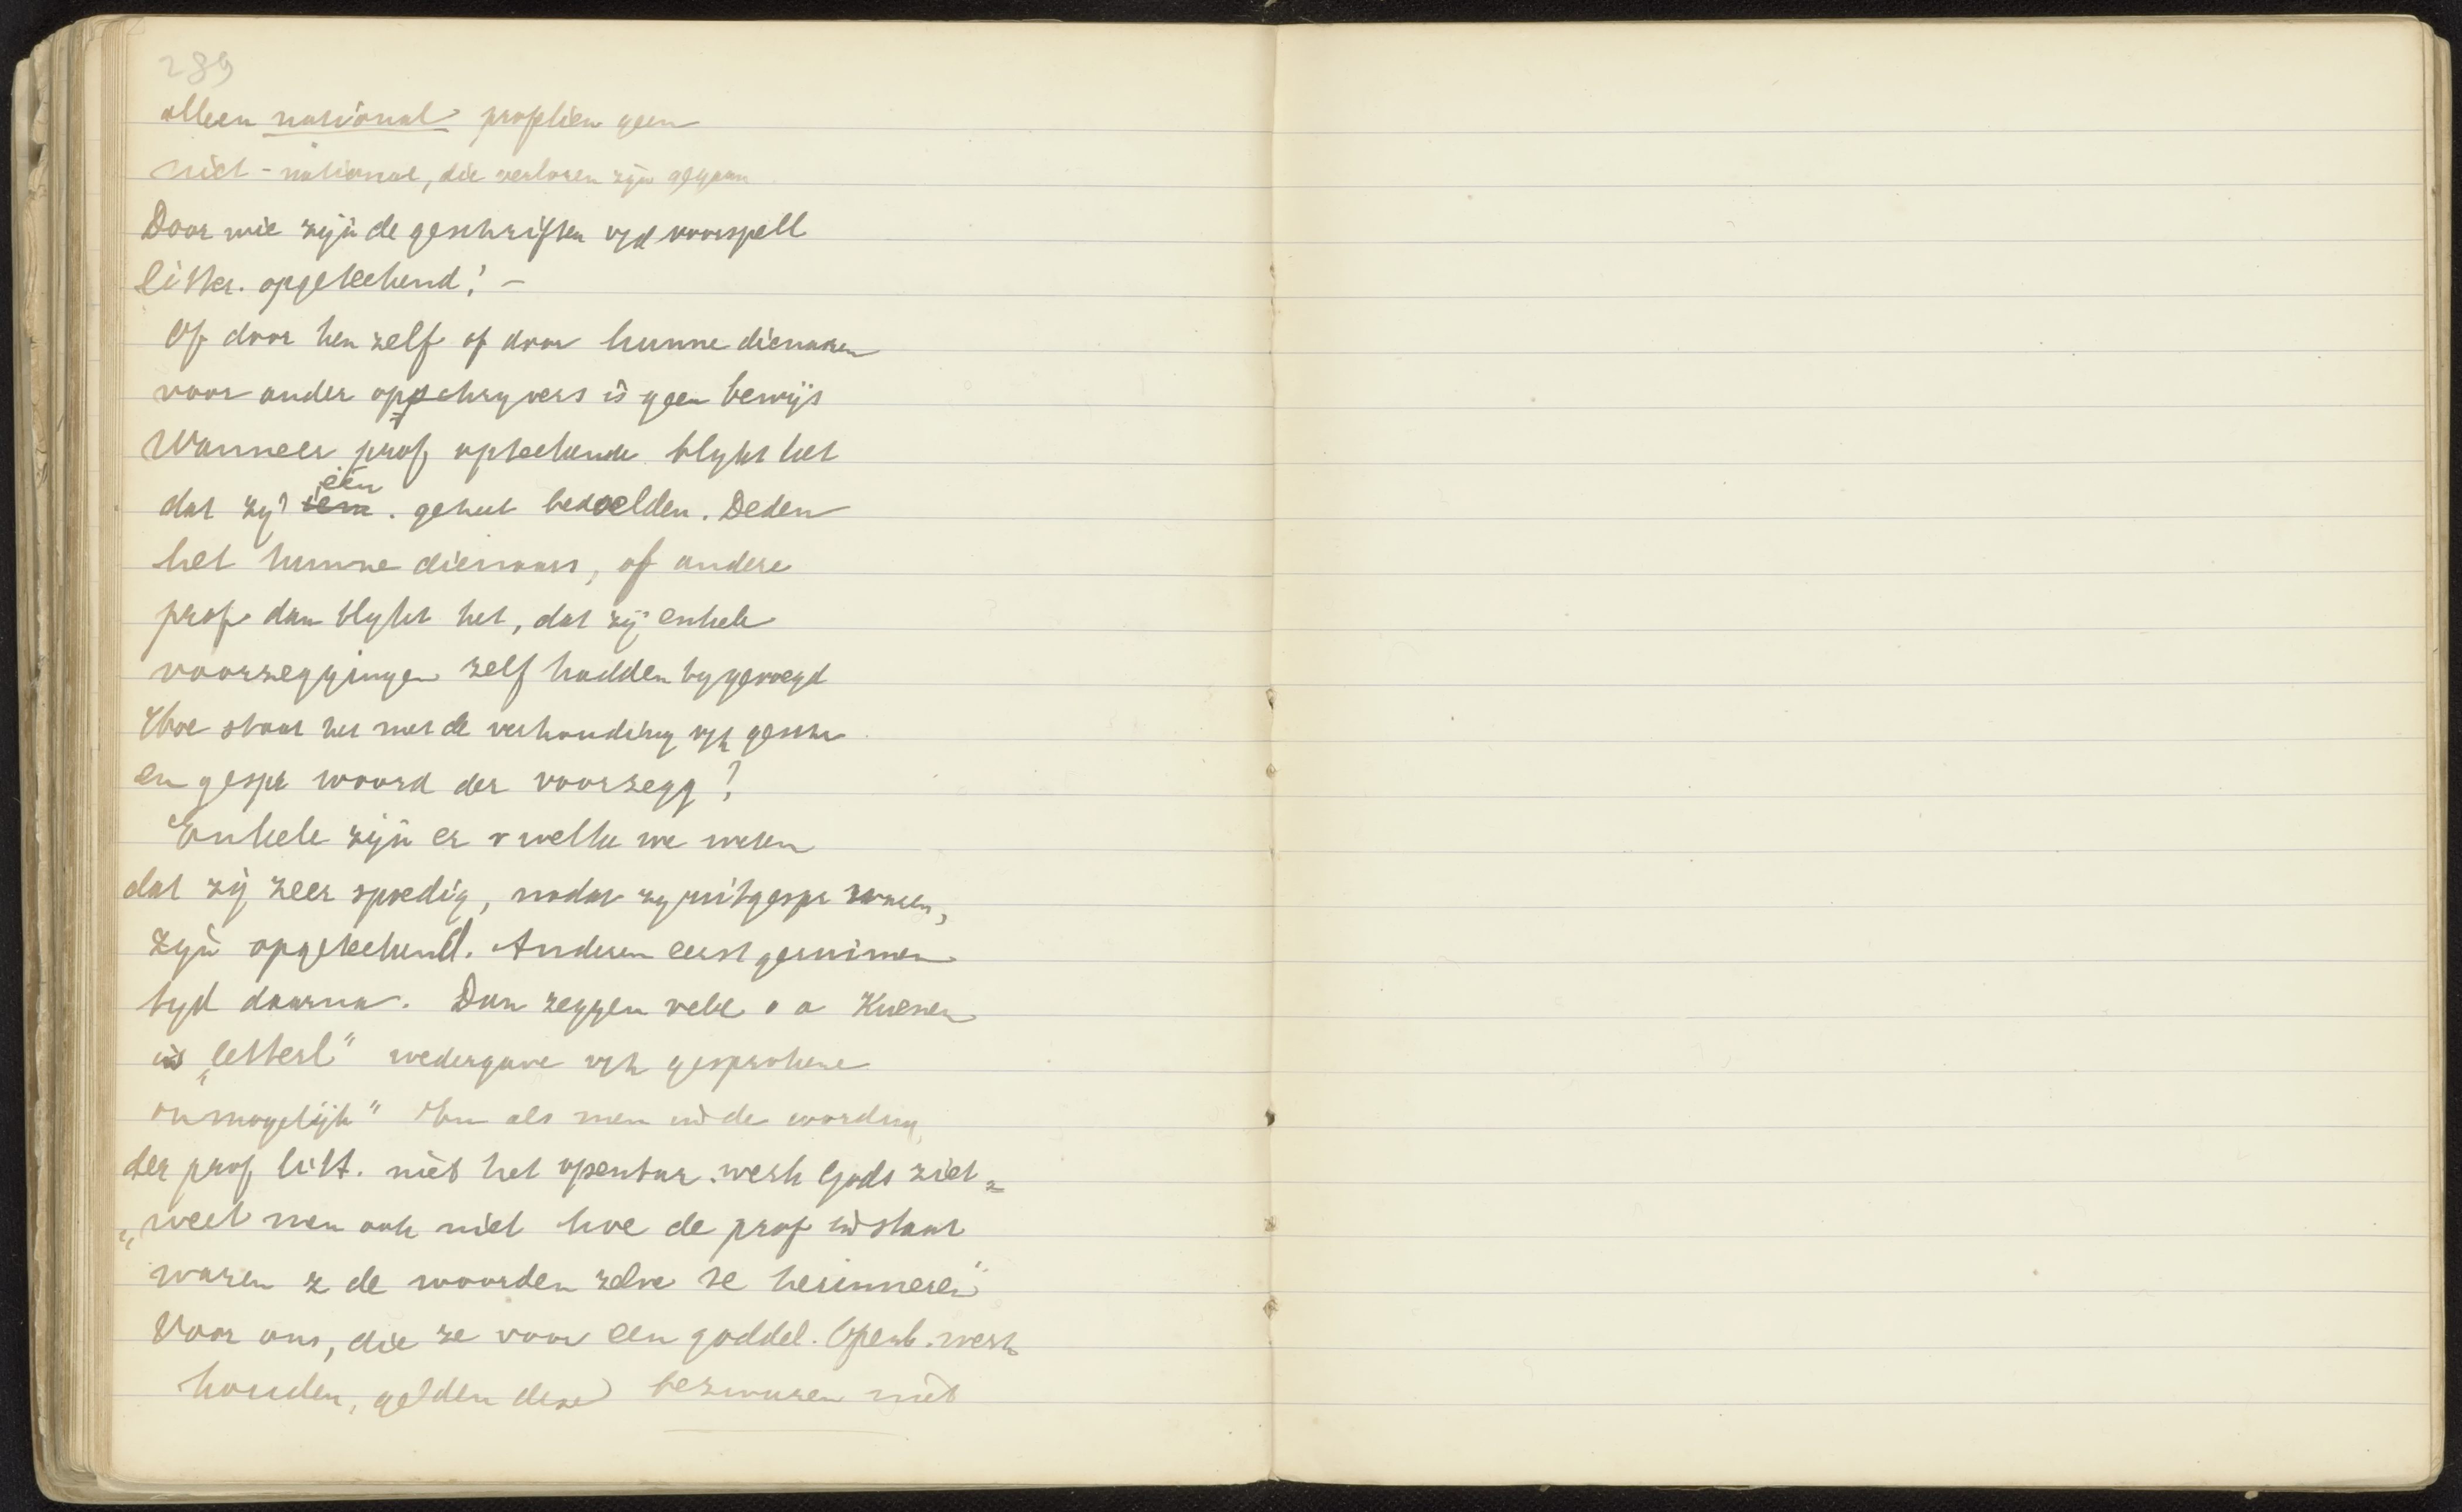 289
alleen nationaal profetien geen
niet - nationaal, die verloren zijn gegaan
Door wie zijn de geschriften vd voorspell
litter. opgetekend? -
Of door hen zelf of door hunne dienaren
voor ander opschryvers is geen bewijs
Wanneer prof optekende blykt het
dat zij één geheel bedoelden. Deden
het hunne dienaars, of andere
prof dan blykt het, dat zij enkele
voorzeggingen zelf hadden bygevoegd
Hoe staat het met de verhouding vh geschr
en gespr woord der voorzegg?
Enkele zijn er v welke we weten
dat zij zeer spoedig, nadat zy uitgespr waren,
zijn opgetekend. Anderen eerst geruimen
tyd daarna. Dan zeggen vele o a Kuenen
is „letterl" wedergave vh gesprokene
onmogelijk" En als men in de wording
der prof litt. niet het openbar. werk Gods ziet
„weet men ook niet hoe de prof in staat
waren z de woorden zelve te herinneren"
Voor ons, die ze voor een goddel. Openb. werk
houden, gelden deze bezwaren niet